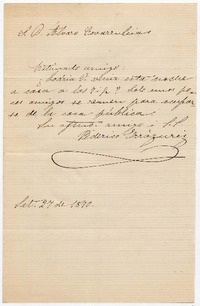 S. D. Álvaro Covarrúbias
Estimado amigo:
¿Podria U. venir esta noche
a casa a las 8 p.? Solo unos po
cos amigos se reunen para
de la cosa pública.
Su afmo. amigo i S.S.
Federico Errázuriz
Set. 27 de 1870.